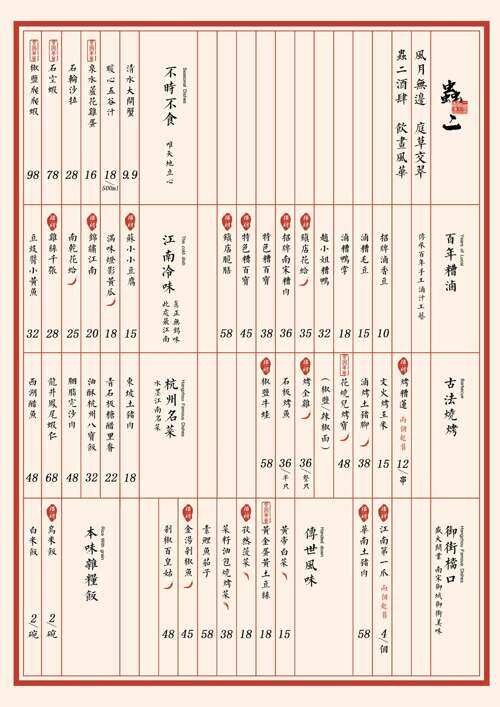 蟲二
風月無邊 庭草交翠
蟲二酒肆 飲畫風華
不時不食
Seasonal Dishes
唯天地立心
清水大閘蟹 9.9
暖心五谷汁 18/500ml
泉水蘆花雞蛋 16
石榴沙拉 28
石空蝦 78
椒鹽爬爬蝦 98
百年糟滷
Years of Lood
傳承百年手工滷汁工藝
招牌滷香豆 10
滷糟毛豆 15
滷糟鴨掌 18
趙小姐糟鴨 32
鎮店花蛤 35
招牌南宋糟肉 36
特色糟百寶 38
特色糟百寶 45
鎮店脆腸 58
江南冷味
The cold dish
真正無錫味
此處最江南
蘇小小豆腐 15
滿味燈影黃瓜 18
錦繡江南 20
南乾花蛤 25
雞絲千張 28
豆豉醬小黃魚 32
古法燒烤
Barbecue
烤糟蓮 兩個起售 12/串
文火烤玉米 15
滷烤土豬腳 38
花燒兒烤寶 48
(椒鹽/辣椒面)
烤全雞 36/整只
石板烤魚 36/半只
椒鹽牛蛙 58
杭州名菜
Hangzhou Famous Dishes
水墨江南名菜
東坡土豬肉 18
青石板糖醋里脊 22
油酥杭州八寶飯 32
胭脂定沙肉 48
龍井鳳尾蝦仁 68
西湖醋魚 48
御街檔口
Hangzhou Famous Dishes
盛大開業 南宋御城御街美味
江南第一爪 兩個起售 4/個
華南土豬肉 58
傳世風味
Handed down
黃帝白菜 15
黃金蛋黃土豆絲 18
孜然菠菜 18
菜籽油包燒烤菜 38
素鯉魚茄子 58
金湯剁椒魚 45
剁椒百皇姑 48
本味雜糧飯
Rice With grain
烏米飯 2/碗
白米飯 2/碗